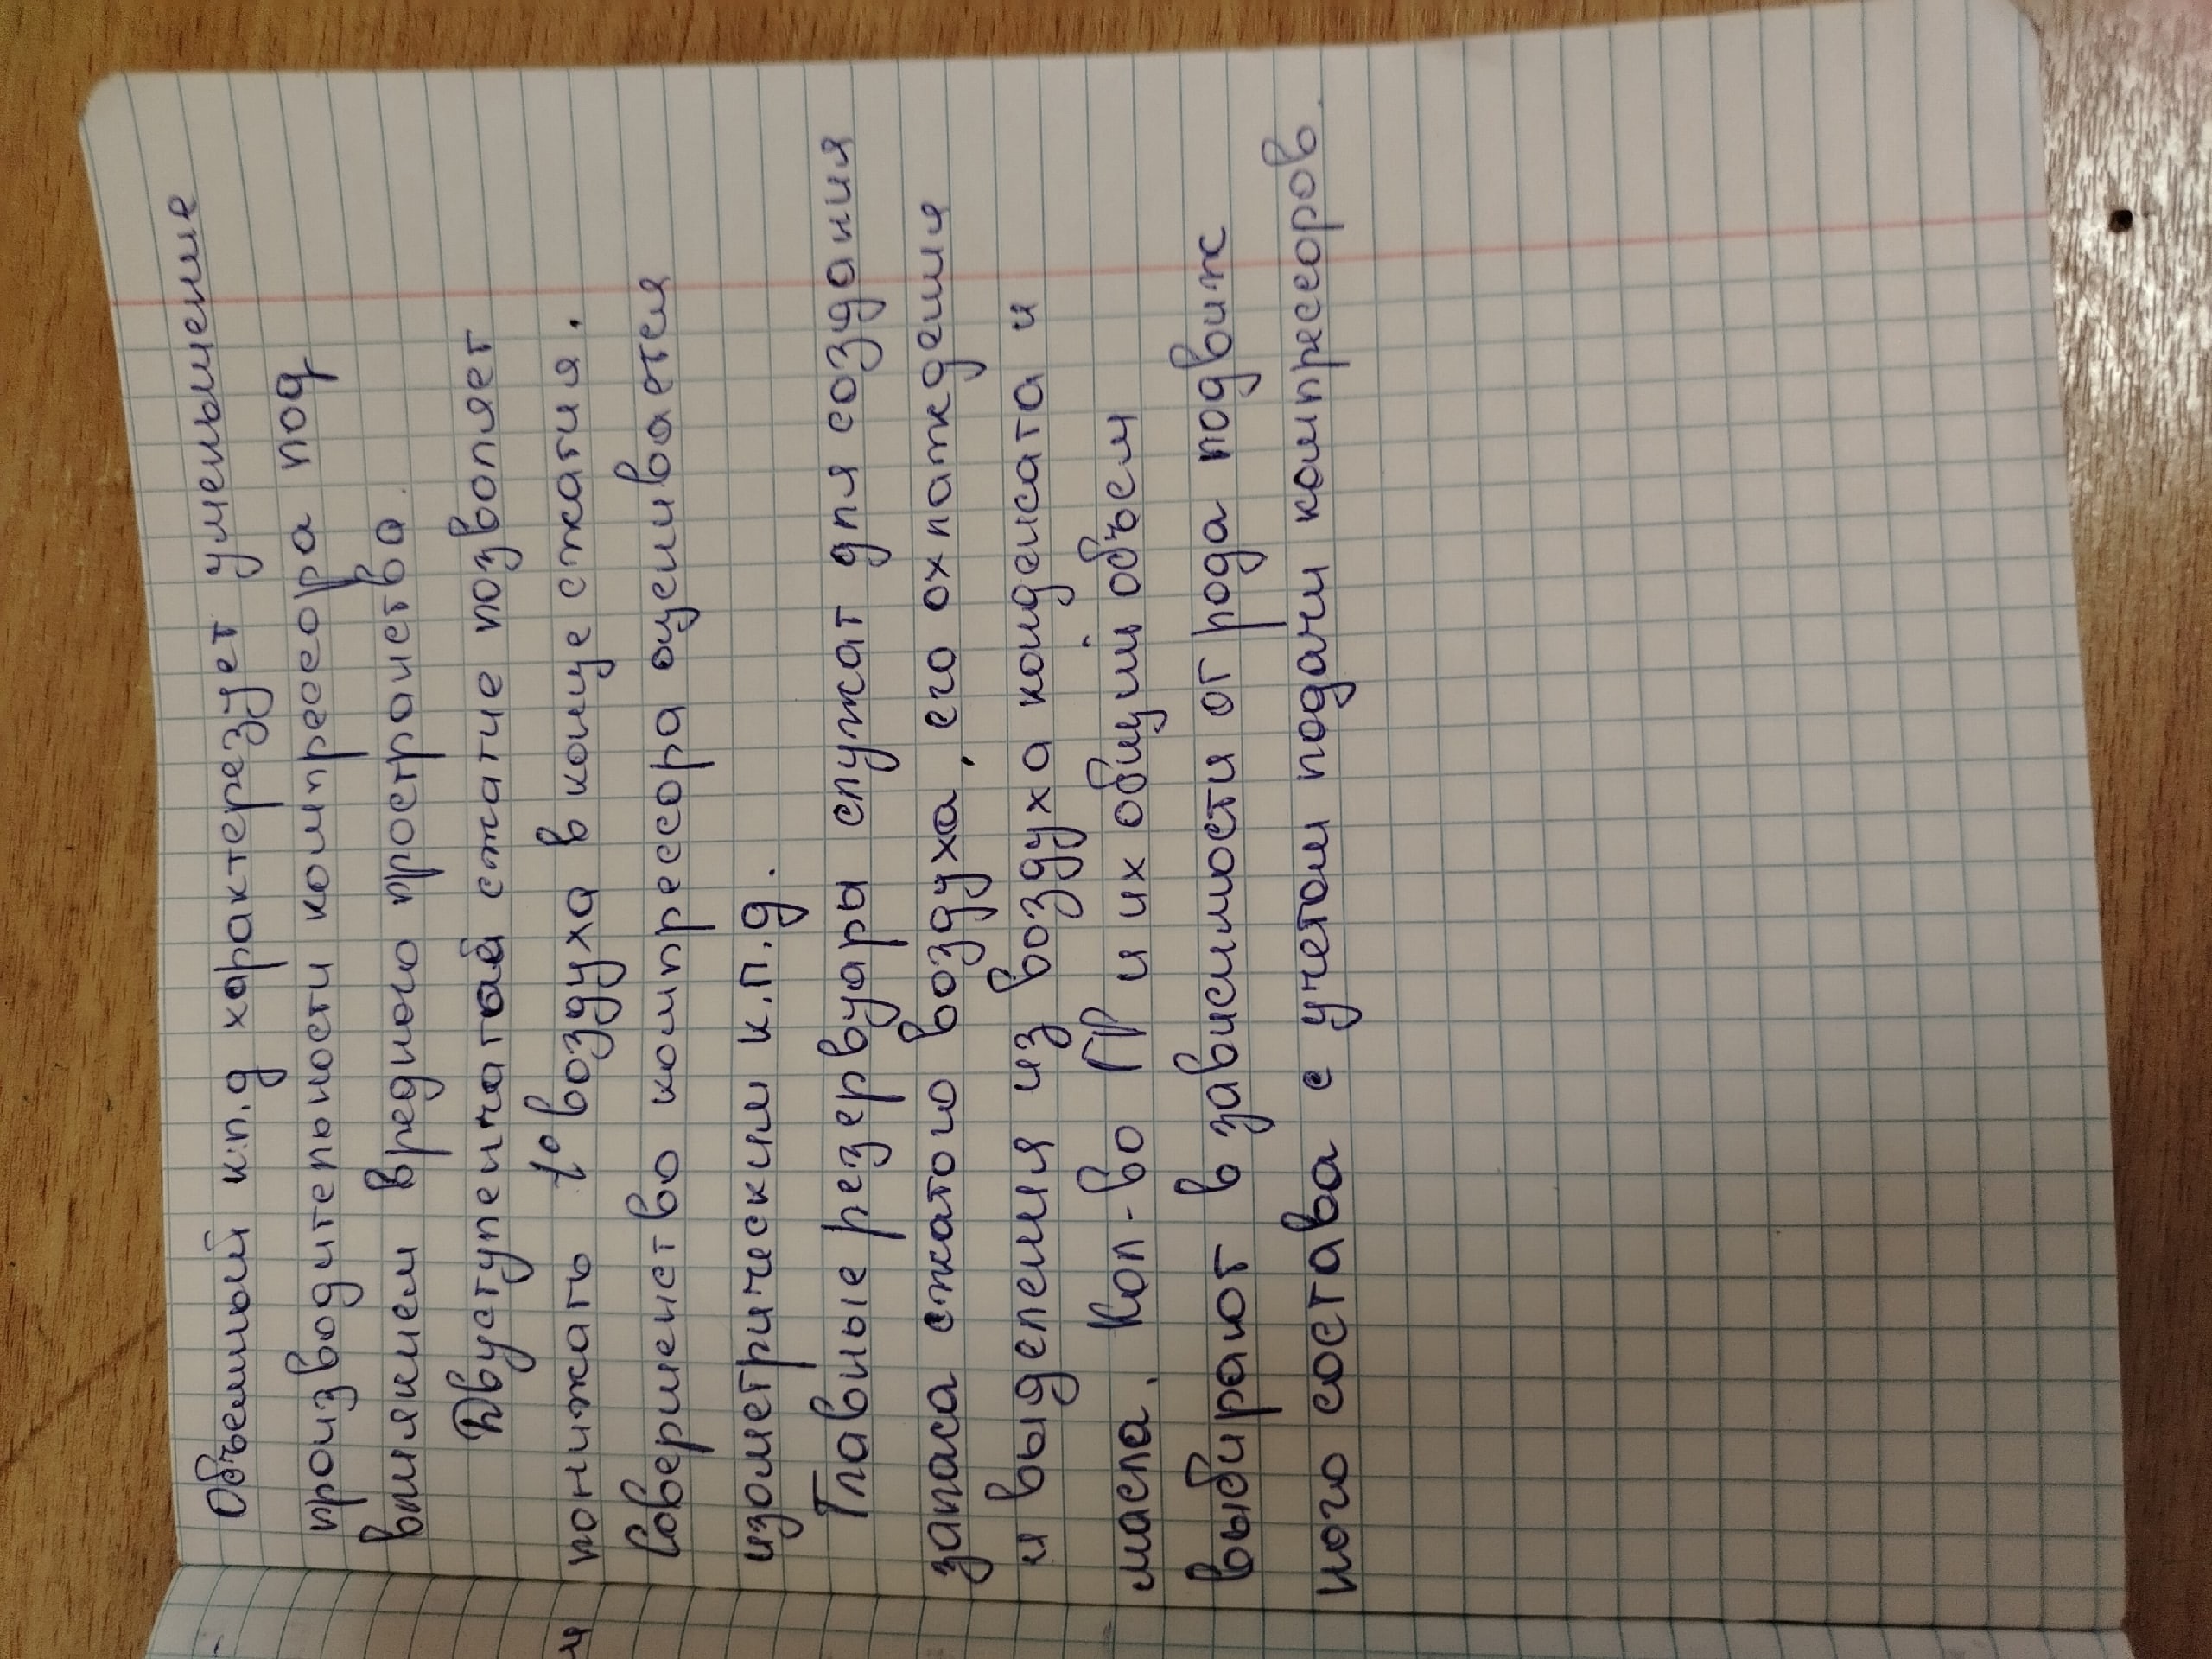 Объемный к.п.д характерезует уменьшение
производительности компрессора под
влиянием вредного пространства.
Двуступенчатое сжатие позволяет
понижать t° воздуха в конце сжатия.
Совершенство компрессора оценивается
изометрическим к.п.д.
Главные резервуары служат для создания
запаса сжатого воздуха, его охлаждения
и выделения из воздуха конденсата и
масла. Кол-во ГР и их общий объем
выбирают в зависимости от рода подвиж
ного состава с учетом подачи компрессоров.